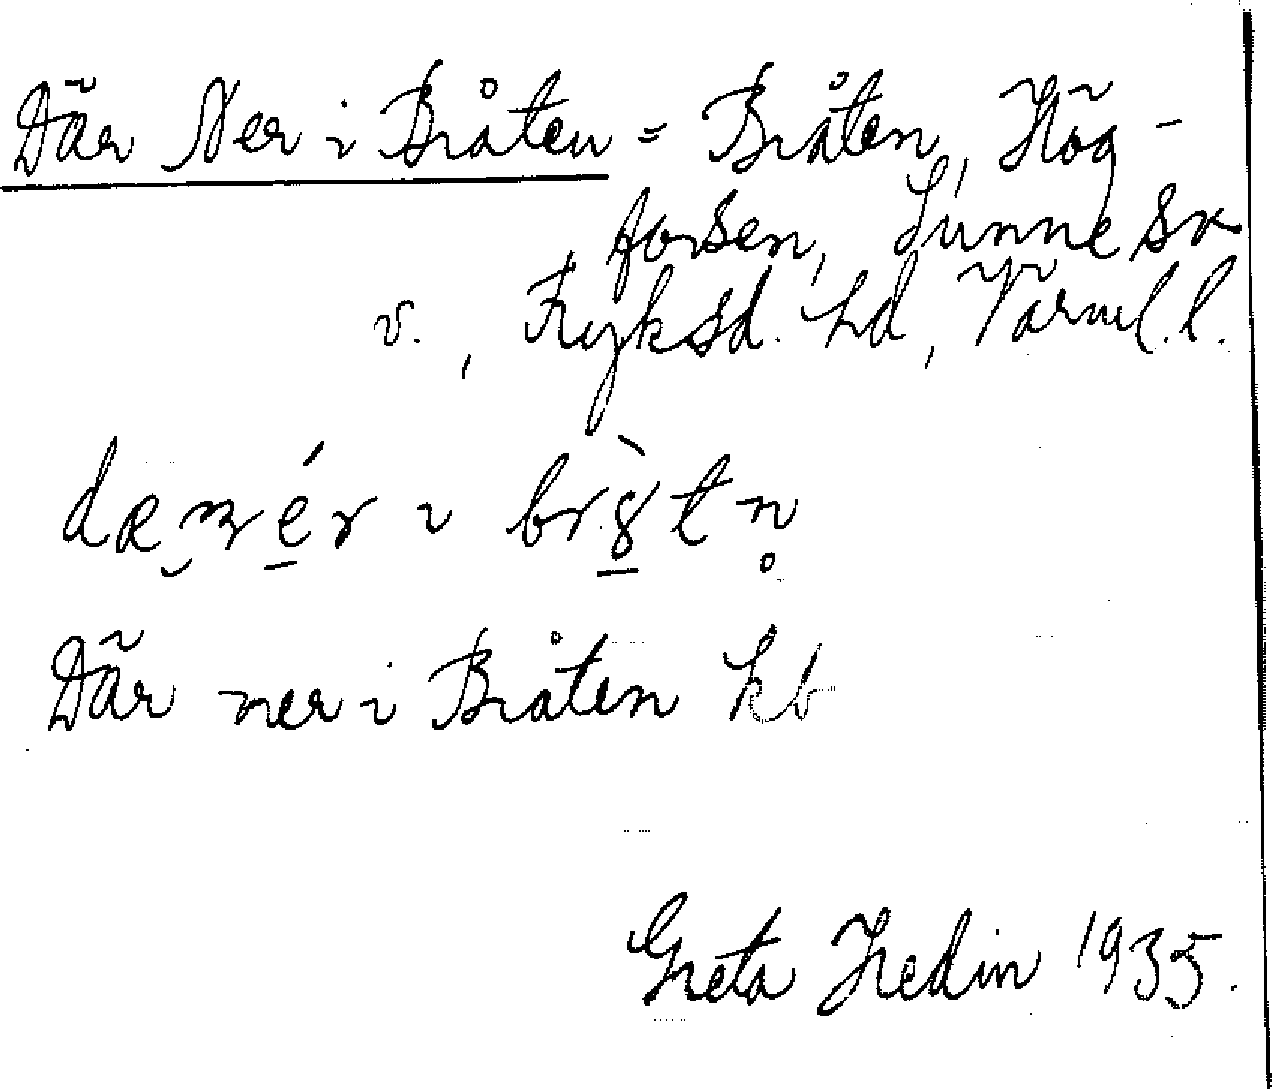 Där Ner i Bråten = Bråten, Hög-
forsen, Sunne sn
v., Fryksd. hd, Värml. l.
Där ner i Bråten kb
Greta Hedin 1935.